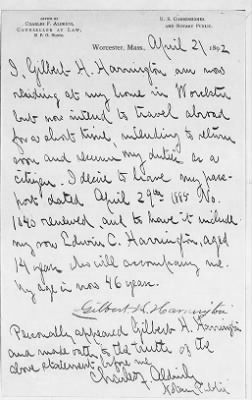 OFFICE OF
CHARLES F. ALDRICH,
COUNSELLOR AT LAW,
U. S. COMMISSIONER
AND NOTARY PUBLIC.
Worcester, Mass., April 21 1892
I, Gilbert H. Harrington am now
residing at my home in Worcester
but now intend to travel abroad
for a short time, intending to return
soon and resume my duties as a
citizen. I desire to have my pass-
port dated April 29th 1885 No.
1640 renewed and to have it include
my son Edwin C. Harrington, aged
14 years who will accompany me.
My age is now 46 years.
Gilbert H. Harrington
Personally appeared Gilbert H. Harrington
and made oath to the truth of the
above statement before me
Charles F. Aldrich
Notary Public